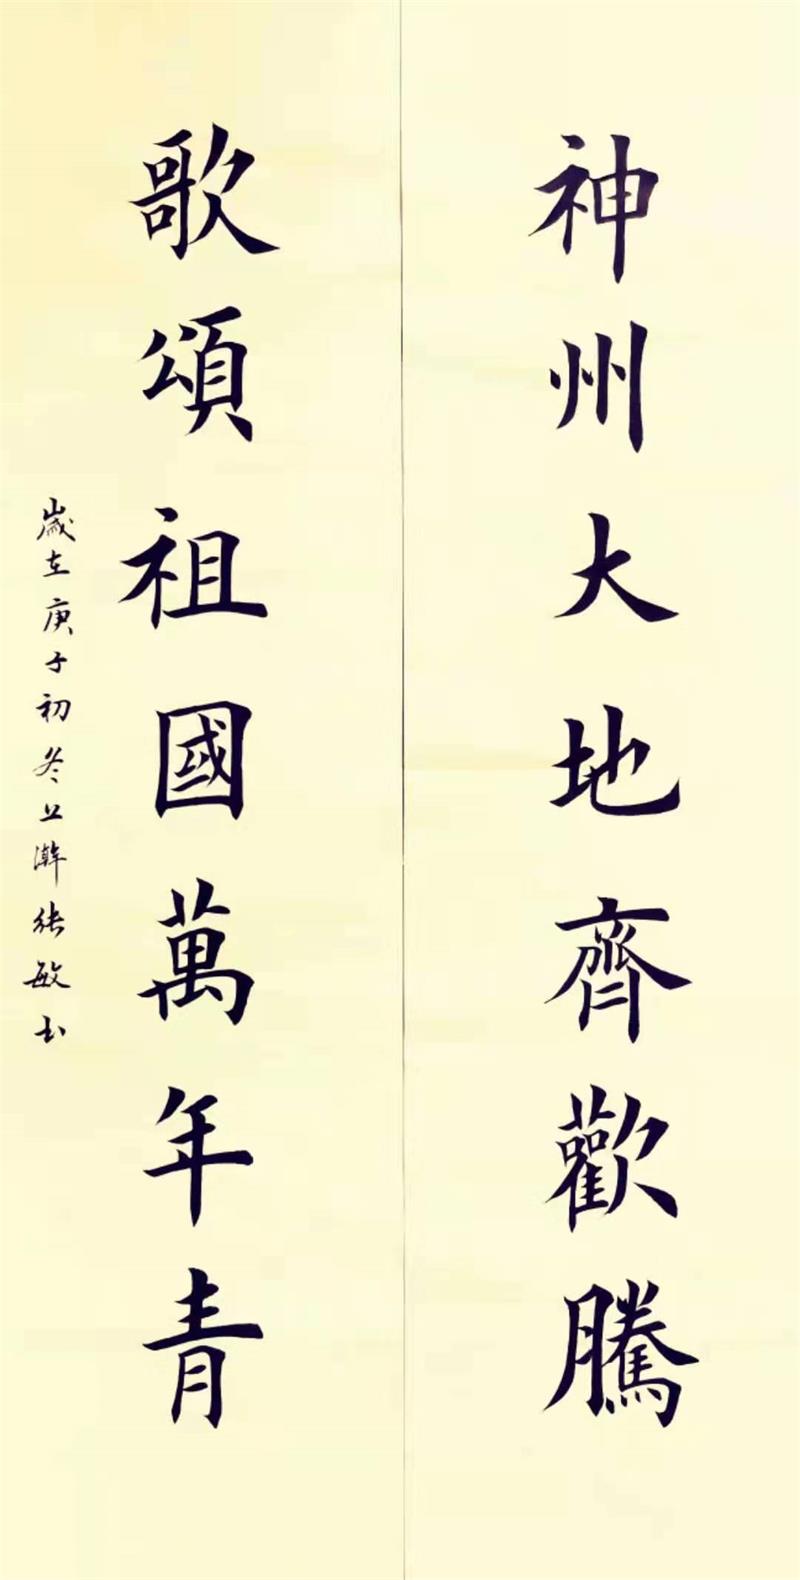 神州大地齊歡騰
歌頌祖國萬年青
歲在庚子初冬上澣張敏書